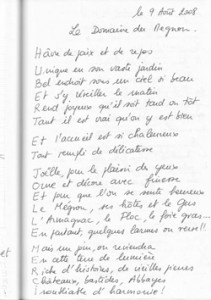 le 9 Août 2008
Le Domaine du Magnon.
Hâvre de paix et de repos
Unique en son vaste jardin
Bel endroit sous un ciel si beau
Et s'y réveiller le matin
Rend joyeux qu'il soit tard ou tôt
Tant il est vrai qu'on y est bien
Et l'accueil est si chaleureux
Tout rempli de délicatesse
Joëlle, pour le plaisir des yeux
Orne et décore avec finesse
Et puis que l'on se sente heureux
Le Magnon, ses hôtes et le Gers
L'Armagnac, le Floc, le foie gras...
En partant, quelques larmes on verse!!
Mais un jour, on reviendra
En cette terre de lumière
Riche d'histoires, de vieilles pierres
Châteaux, bastides, Abbayes
d'harmonie!
et